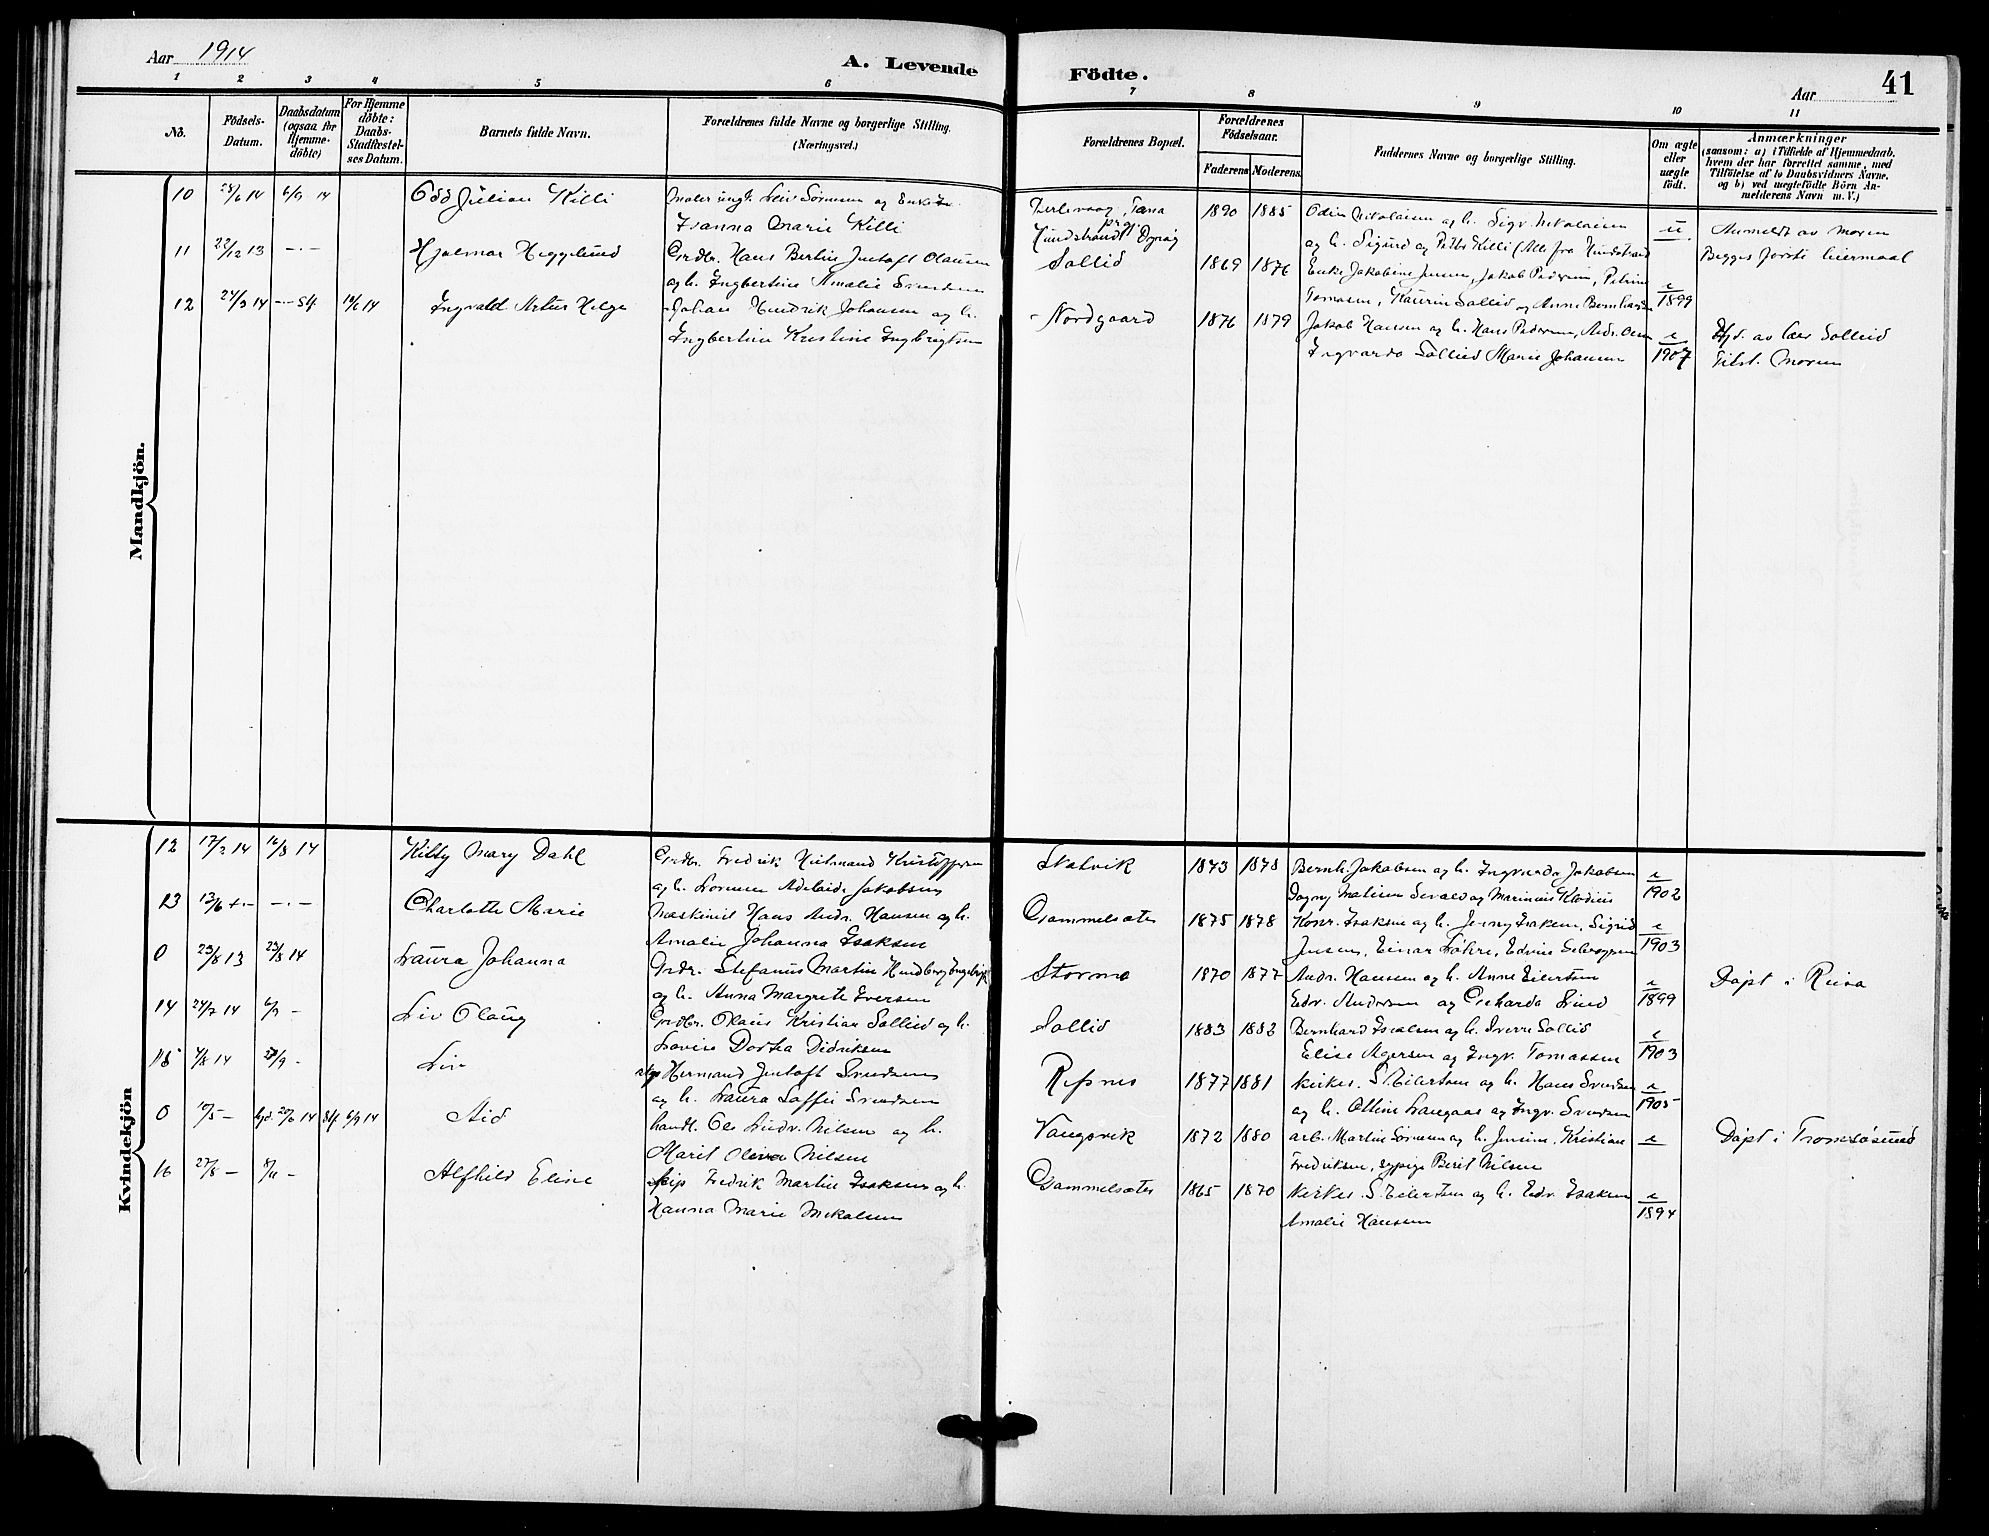 Aar 1914
A. Levende Födte.
Aar
41
1 2 3 4 5 6 7 8 9 10 11
No.
Födsels-Datum.
Daabsdatum (ogsaa for Hjemme-döbte)
For Hjemme döbte: Daabs-Stadfæstel-ses Datum.
Barnets fulde Navn.
Forældrenes fulde Navne og borgerlige Stilling.
(Næringsvei.)
Forældrenes Bopæl.
Forældrenes Födselsaar.
Faderens Moderens
Faddernes Navne og borgerlige Stilling.
Om ægte eller uægte födt.
Anmærkninger
(saasom: a) i Tilfælde af Hjemmedaab,
hvem der har forrettet samme, med
Tilföielse af to Daabsvidners Navne,
og b) ved uægtefödte Börn An-
melderens Navn m. V.)
Mandkjön.
10 28/6 14 6/9 14 Odd Julian Killi Maler ungk. Leiv Sörensen og Enke
Hanna Marie Killi
Berlevaag, Tana 1890 1885 Odin Nikolaisen og h. Sigv. Nikolaisen u Anmeldt av moren
og h. Sigurd og Petra Killi (Alle fra Hundstrand Begges første leiermaal
11 22/12 13 -.- Hjalmar Heggelund Grdbr. Hans Bertin Justoft Olausen
og h. Ingbertine Amalie Svendsen
Sollid 1869 1876 Enke Jakobine Jensen, Jakob Pedersen, Petrine e
Tomasen, Kaurin Sollid og Anne Bernhardsen 1899
12 24/3 14 -.- Stf. 14 Ingvald Artur Helge Johan Hendrik Johansen og h.
Ingbertine Kristine Ingbrigtsen
Nordgaard 1876 1879 Jakob Hansen og h. Hans Pedersen, Andr. Olsen e Hjd. av Lars Sollid
Ingvarda Sollid Marie Johansen 1907 Tilst. Moren
Kvindekjön
12 17/2 14 16/8 14 Kitty Mary Dahl Grdbr. Fredrik Hartmand Kristoffersen
og h. Lorense Adelaide Jakobsen
Skatvik 1873 1878 Bernh. Jakobsen og h. Ingvarda Jakobsen e
Dagny Matisen Sevald og Marinius Klodius 1902
13 13/6 -.- -.- Charlotte Marie Maskinist Hans Andr. Hansen og h.
Amalie Johanna Isaksen
Gammelsæter 1875 1878 Konr. Isaksen og h. Jenny Isaksen, Sigrid e
Jensen, Einar Løhre, Edvin 1903
0 23/8 13 23/8 14 Laura Johanna Grdr. Stefanus Martin Hindberg Ingebrigts
og h. Anna Margrete Iversen
Stormo 1870 1877 Andr. Hansen og h. Anne Eilertsen e Døpt i Reisa
Edv. Andersen og Gerharda Lind 1899
14 24/7 14 6/9 - Liv Olaug Grdbr. Olaus Kristian Sollid og h.
Lovise Dortea Didriksen
Sollid 1883 1882 Bernhard Isaksen og h. Sverre Sollid e
Elise Agersen og Ingv. Tomassen 1903
15 4/8 14 27/9 - Liv Hermand Justoft Svendsen
og h. Laura Soffie Svendsen
Refsnes 1877 1881 Kirkes. S. Eilertsen og h. Hans Svendsen e
og h. Olline Langaas og Ingv. Svendsen 1905
0 10/5 - hjd. 20/6 14 Stf. 6/9 14 Aid handl. Ole Ludv. Nilsen og h.
Marit Oleva Nilsen
Vangsvik 1872 1880 arb. Martin Sörensen og h. Jensine, Kristian e Døpt i Tromsøsund
Fredriksen, sypige Berit Nilsen
16 27/8 - 8/11 - Alfhild Eline skip Fredrik Martin Isaksen og h.
Hanna Marie Mikalsen
Gammelsæter 1865 1870 Kirkes. S. Eilertsen og h. Edv. Isaksen e
Amalie Hansen 1894